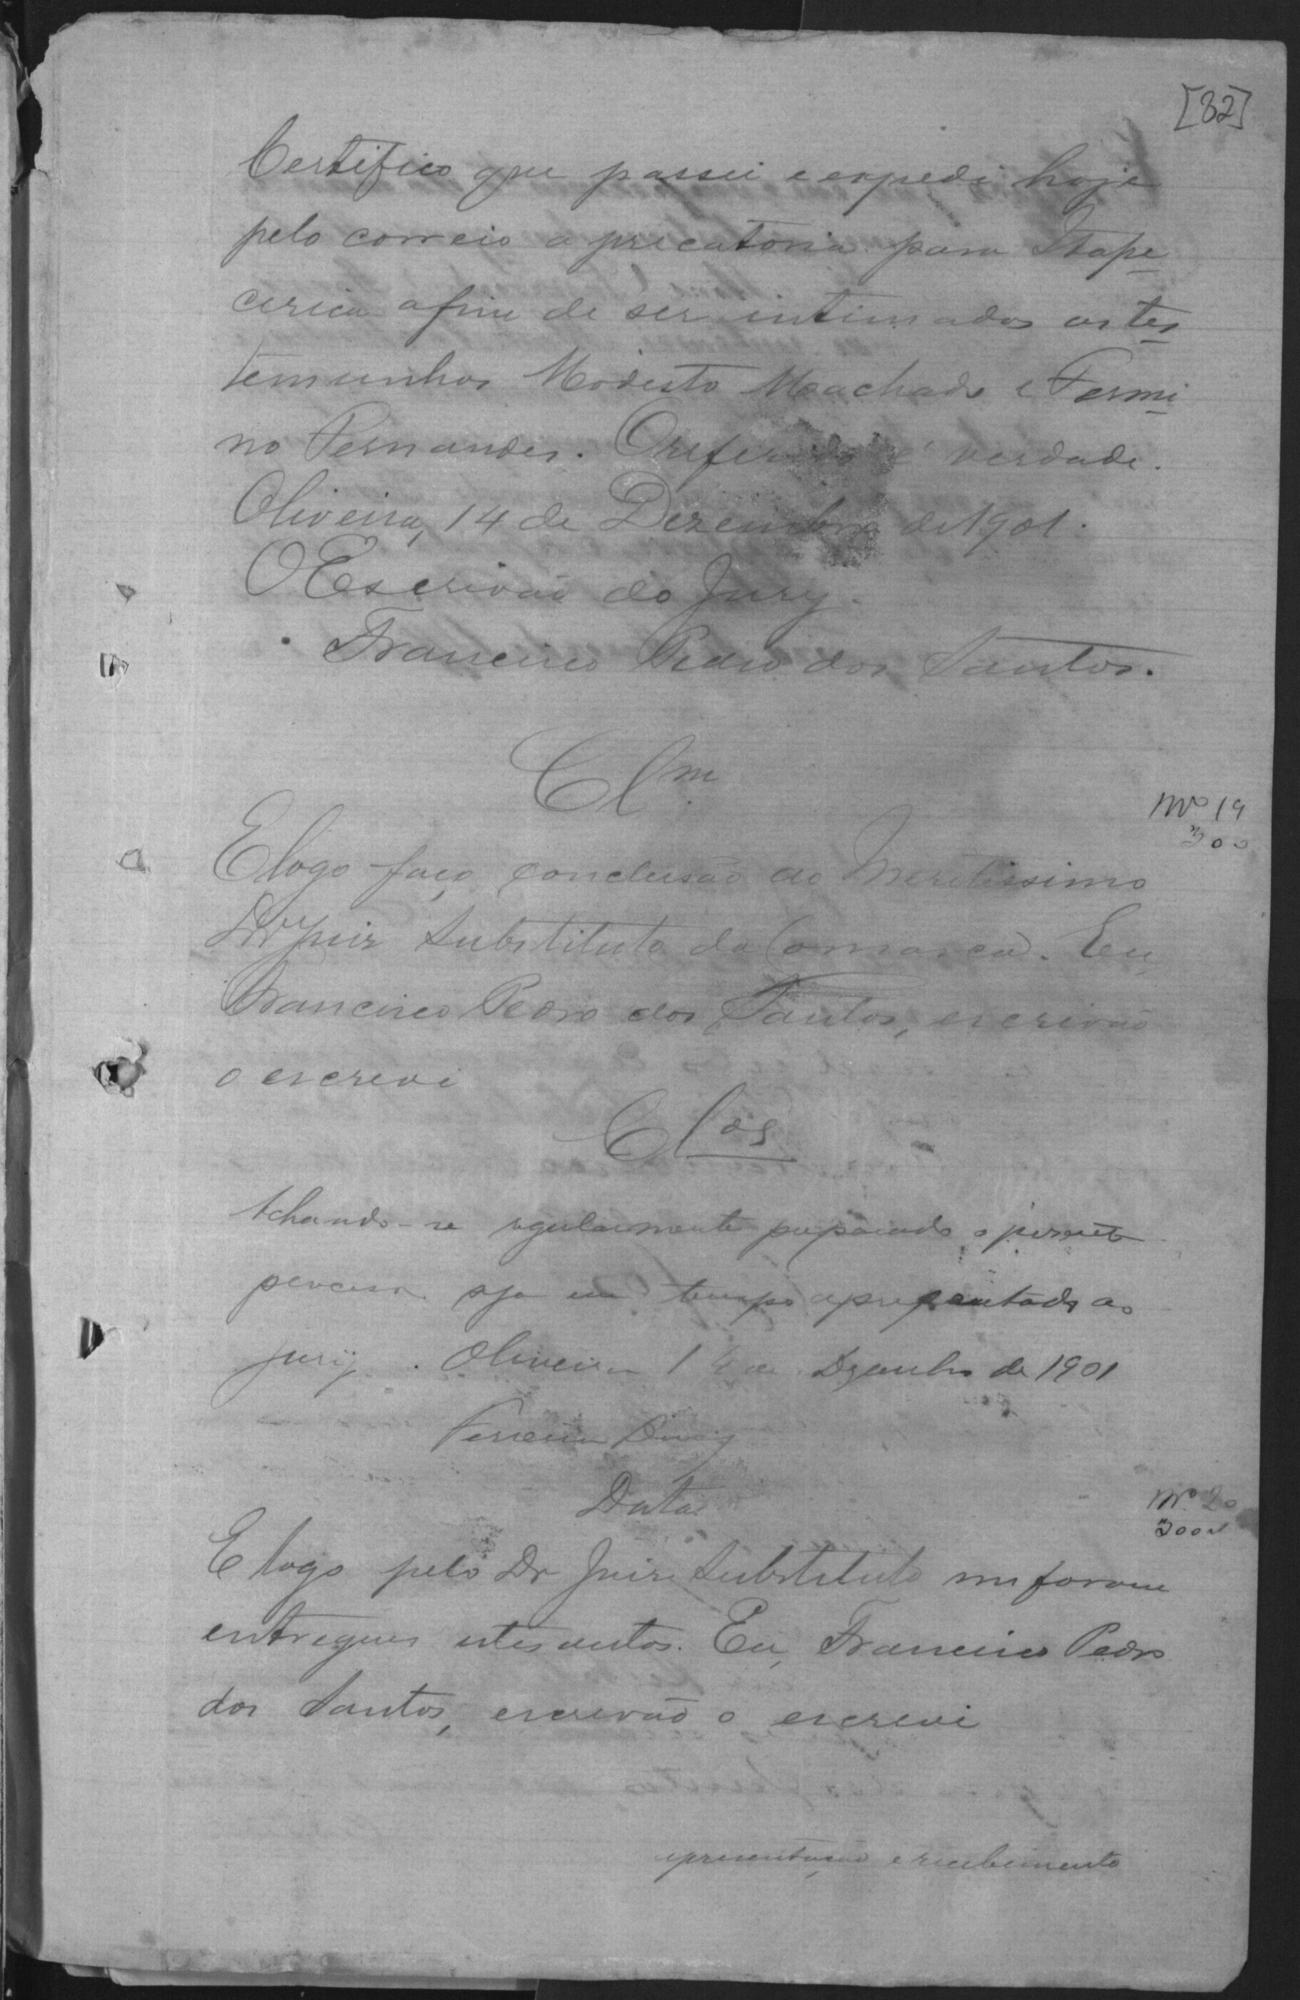 [82]
Certifico que passei e expedi hoje
pelo correio a precatoria para Itape
cerica afim de ser intimados as tes
temunhas Modesto Machado e Fermi
no Fernandes. O referido é verdade.
Oliveira, 14 de Dezembro de 1901.
O Escrivão do Jury.
Francisco Pedro dos Santos.
Clm
Nº 19
300
E logo faço conclusão ao Meritissimo
Dr Juiz Substituto da Comarca. Eu,
Francisco Pedro dos Santos, escrivão
o escrevi
Clos
Achando-se regularmente preparado o presente
processo seja em tempo apresentado ao
jury. Oliveira 14 de Dezembro de 1901
Ferreira Diniz
Data
Nº 20
300
E logo pelo Dr Juiz Substituto me foram
entregues estes autos. Eu, Francisco Pedro
dos Santos, escrivão o escrevi
apresentação e recebimento